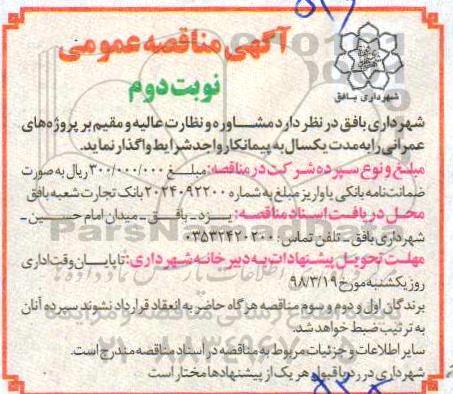 آگهی مناقصه عمومی
نوبت دوم
شهرداری بافق
شهرداری بافق در نظر دارد مشاوره و نظارت عالیه و مقیم بر پروژه های
عمرانی را به مدت یکسال به پیمانکار واجد شرایط واگذار نماید.
مبلغ و نوع سپرده شرکت در مناقصه: مبلغ ۳۰۰/۰۰۰/۰۰۰ ریال به صورت
ضمانت نامه بانکی یا واریز مبلغ به شماره ۲۰۲۴۰۹۲۲۰۰ بانک تجارت شعبه بافق
محل دریافت اسناد مناقصه: یزد - بافق - میدان امام حسین -
شهرداری بافق - تلفن تماس: ۰۳۵۳۲۴۲۰۲۰۰
مهلت تحویل پیشنهادات به دبیرخانه شهرداری: تا پایان وقت اداری
روز یکشنبه مورخ ۹۸/۳/۱۹
برندگان اول و دوم و سوم مناقصه هرگاه حاضر به انعقاد قرارداد نشوند سپرده آنان
به ترتیب ضبط خواهد شد.
سایر اطلاعات و جزئیات مربوط به مناقصه در اسناد مناقصه مندرج است.
شهرداری در رد یا قبول هر یک از پیشنهادها مختار است